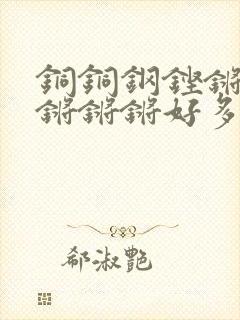 銅銅鋼鏗鏘
鏘鏘鏘好多
郗淑艷